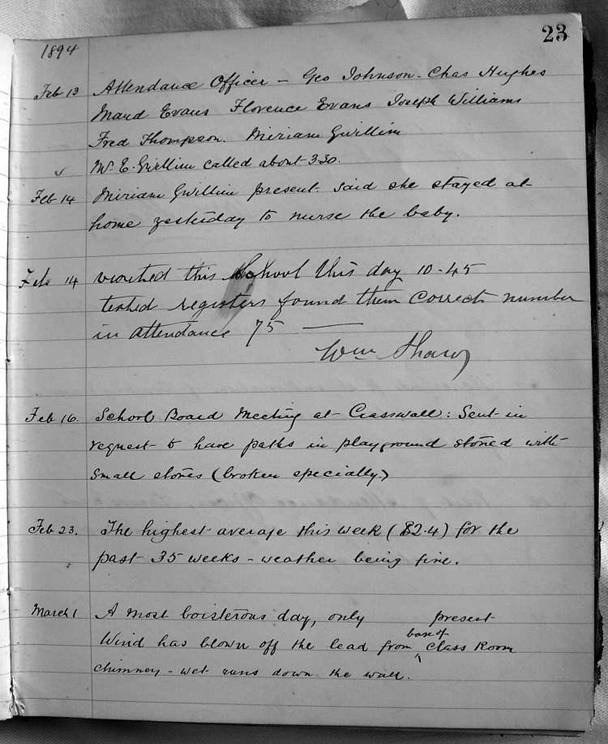 23
1894
Feb 13 Attendance Officer - Geo Johnson. Chas Hughes
Maud Evans Florence Evans Joseph Williams
Fred Thompson. Miriam Gwillim
Mr. E. Gwillim called about 3.30.
Feb 14 Miriam Gwillim present. Said she stayed at
home yesterday to nurse the baby.
Feb 14 visited this School this day 10-45
tested registers found them correct number
in attendance 75 —
Wm Shaw
Feb 16. School Board Meeting at Crasswall: Sent in
request to have paths in playground stoned with
small stones (broken specially)
Feb 23. The highest average this week (82.4) for the
past 35 weeks - weather being fine.
March 1 A most boisterous day, only present
Wind has blown off the lead from base of Class Room
chimney - wet runs down the wall.